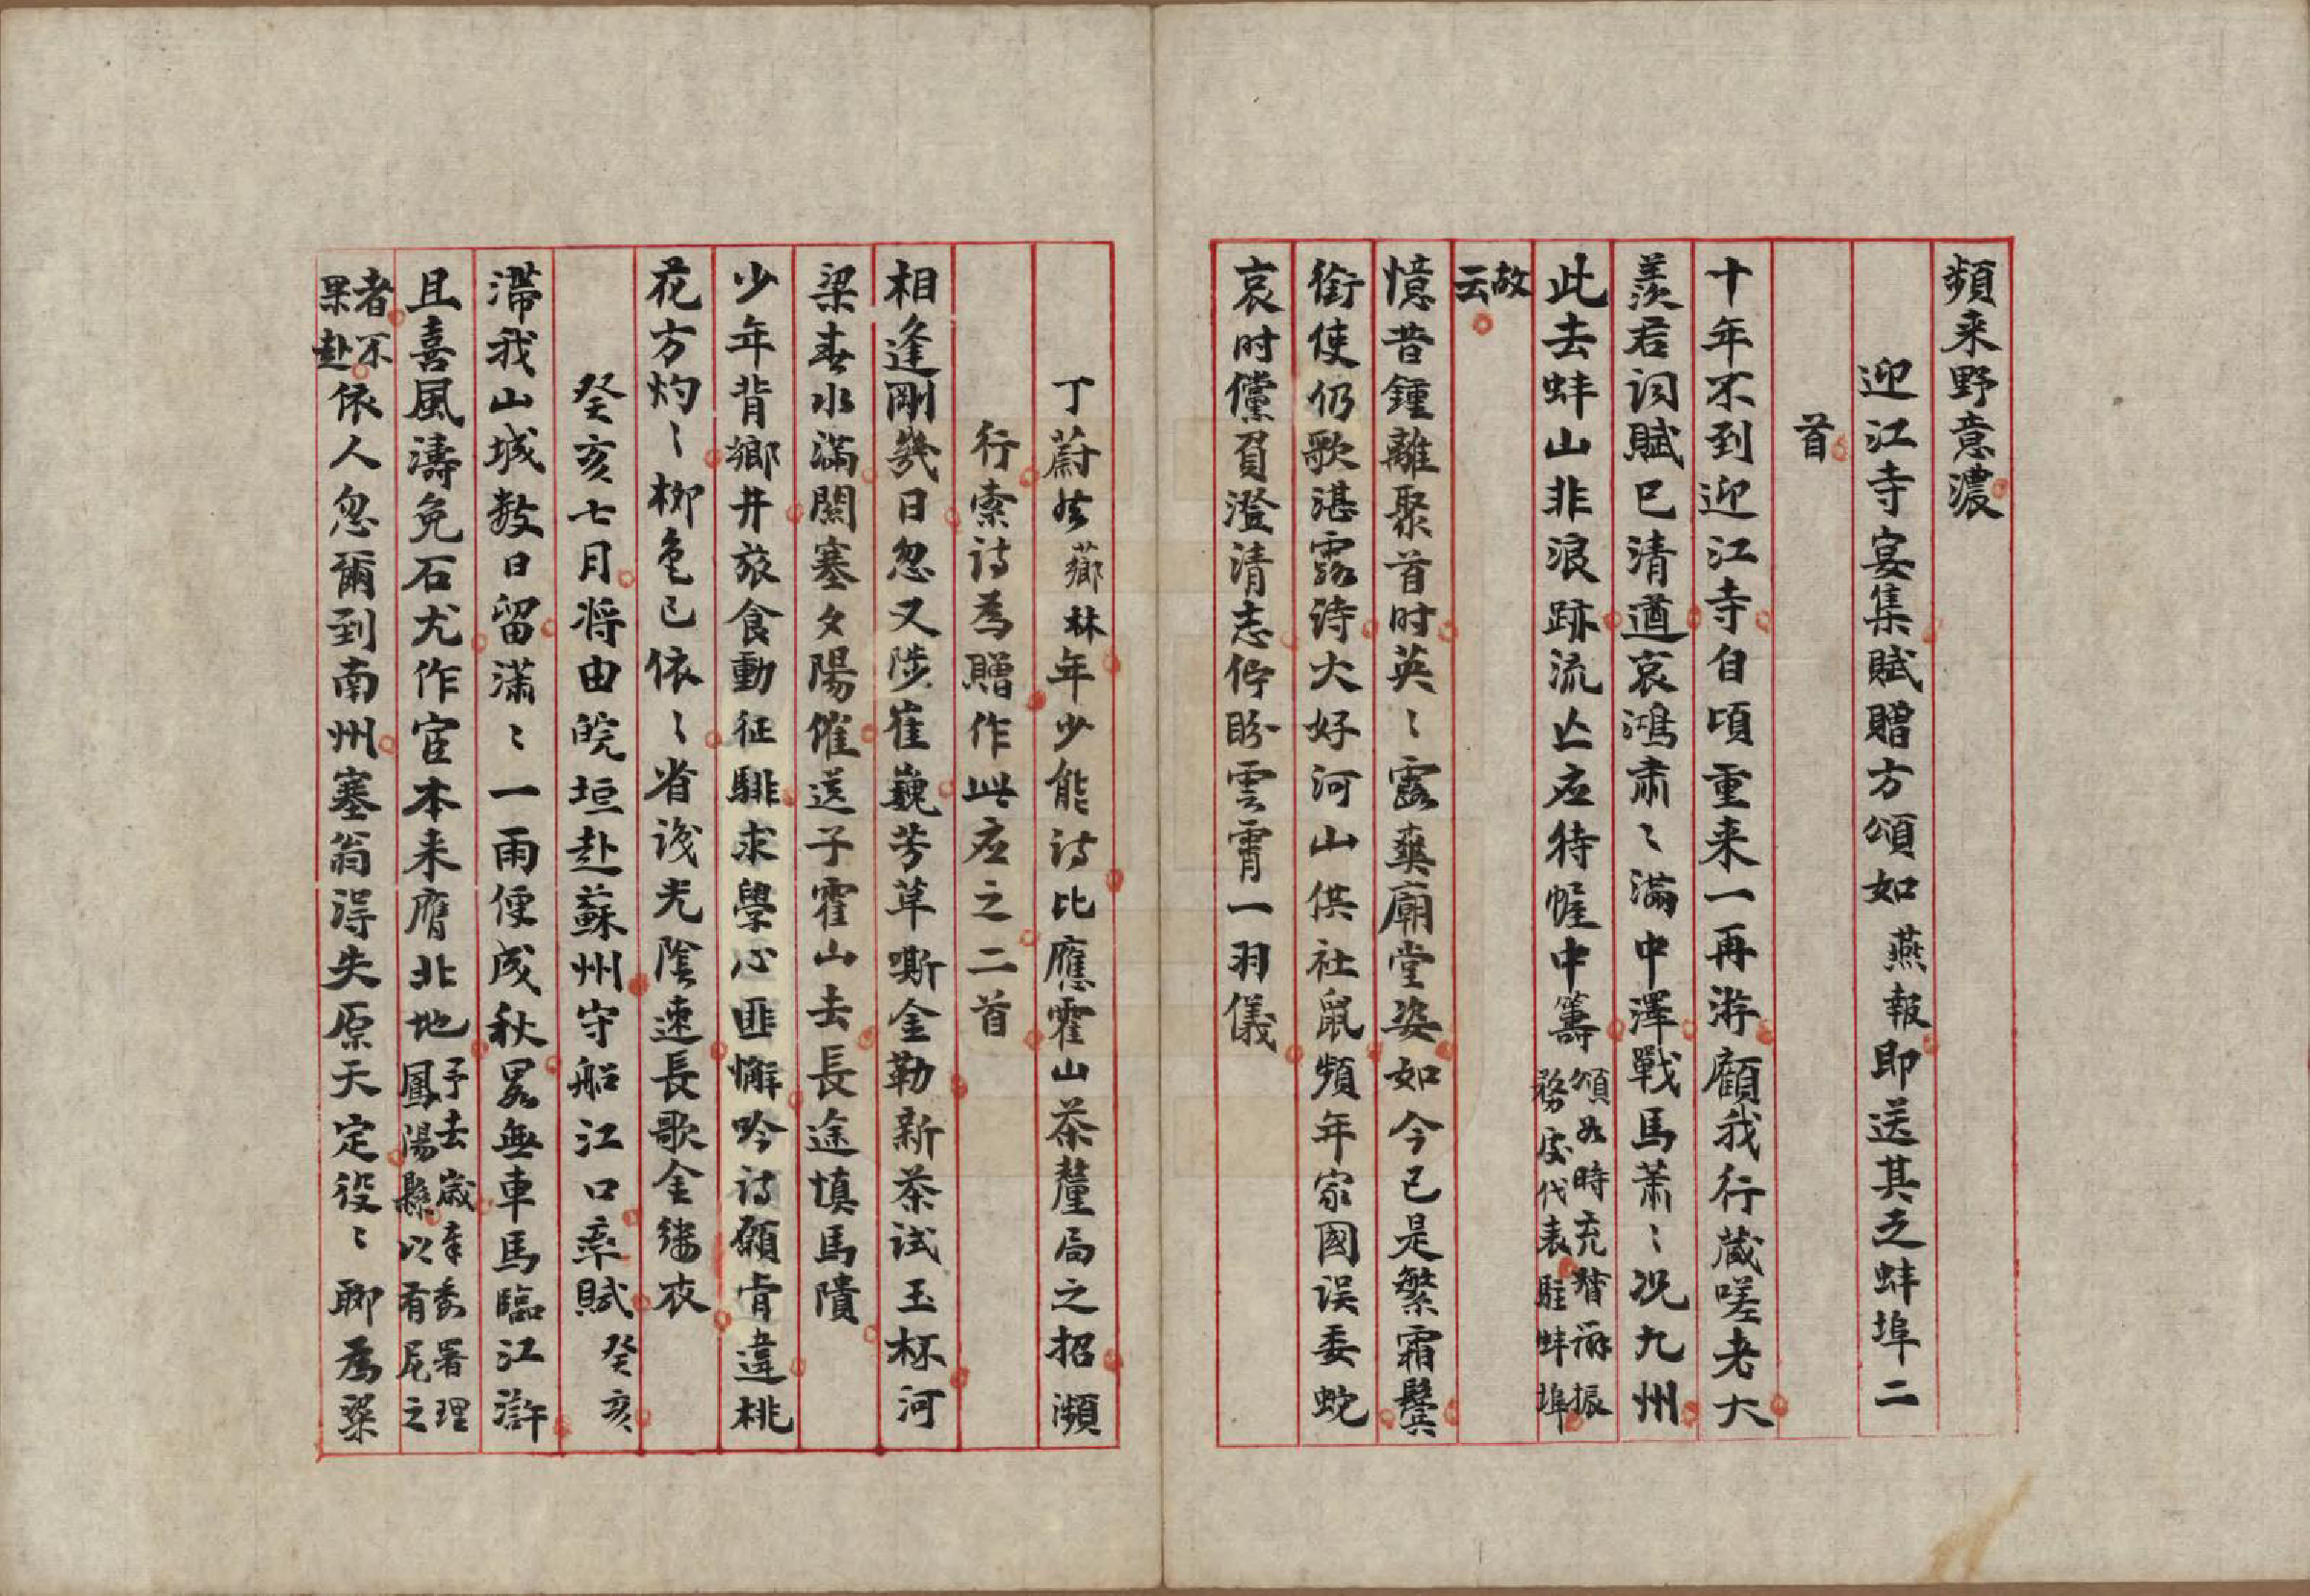 頻来野意濃
迎江寺宴集賦贈方頌如燕報即送其之蚌埠二
首
十年不到迎江寺自頃重来一再游顧我行蔵嗟老大
羨君詞賦已清遒哀鴻肅〻滿中澤戰馬萧〻况九州
此去蚌山非浪跡流亾应待幄中籌頌如時充督辦振務處代表駐蚌埠
故云
憶昔鍾離聚首时英〻露爽廟堂姿如今已是繁霜鬓
銜使仍歌湛露诗大好河山供社鼠頻年家國误委蛇
哀时儻負澄清志佇盼雲霄一羽儀
丁蔚岑薌林年少能诗比應霍山茶釐局之招瀕
行索诗為贈作此应之二首
相逢剛幾日忽又陟崔巍芳草嘶金勒新茶试玉杯河
梁春水滿關塞夕陽催送子霍山去長途慎馬隤
少年背鄉井旅食動征騑求學心匪懈吟诗願肯違桃
花方灼〻柳色已依〻省识光陰速長歌金缕衣
癸亥七月将由皖垣赴蘇州守船江口率賦癸亥
滞我山城数日留潇〻一雨便成秋畧無車馬臨江滸
且喜風濤免石尤作宦本来膺北地予去歲奉委署理鳳陽縣以有尼之
者不果赴依人忽爾到南州塞翁得失原天定役〻聊為粱